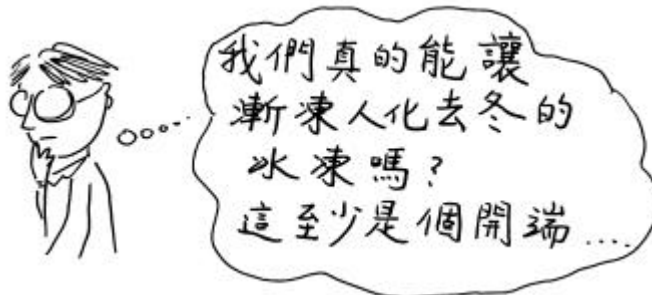 我們真的能讓
漸凍人化去冬的
冰凍嗎?
這至少是個開端....